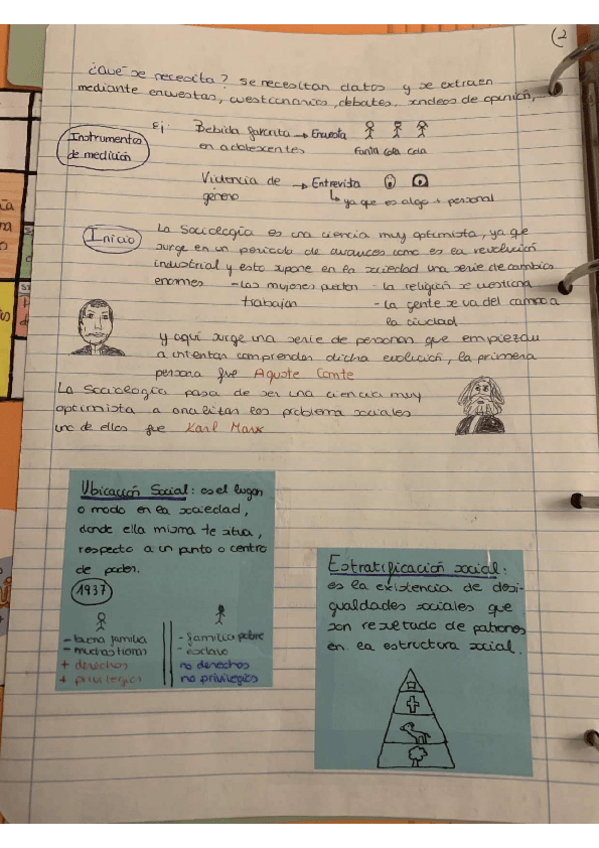 2
¿Qué se necesita? Se necesitan datos y se extraen
mediante encuestas, cuestionarios, debates, sondeos de opinión,
Instrumentos
de medición
Ej:
Bebida favorita → Encuesta
en adolescentes
Fanta Cola Cola
Violencia de → Entrevista
género
↳ ya que es algo + personal
Inicio
La Sociología es una ciencia muy optimista, ya que
surge en un periodo de avances como es la revolución
industrial y esto supone en la sociedad una serie de cambios
enormes - Las mujeres pueden - la religión se cuestiona
trabajar - la gente se va del campo a
la ciudad
y aquí surge una serie de personas que empiezan
a intentar comprender dicha evolución, la primera
persona fue Aguste Comte
La Sociología pasa de ser una ciencia muy
optimista a analizar los problema sociales
uno de ellos fue Karl Marx
Ubicación Social: es el lugar
o modo en la sociedad,
donde ella misma te situa,
respecto a un punto o centro
de poder.
1937
- buena familia
- muchas tierras
+ derechos
+ privilegios
- familia pobre
- esclavo
no derechos
no privilegios
Estratificación social:
es la existencia de desi-
gualdades sociales que
son resultado de patrones
en la estructura social.